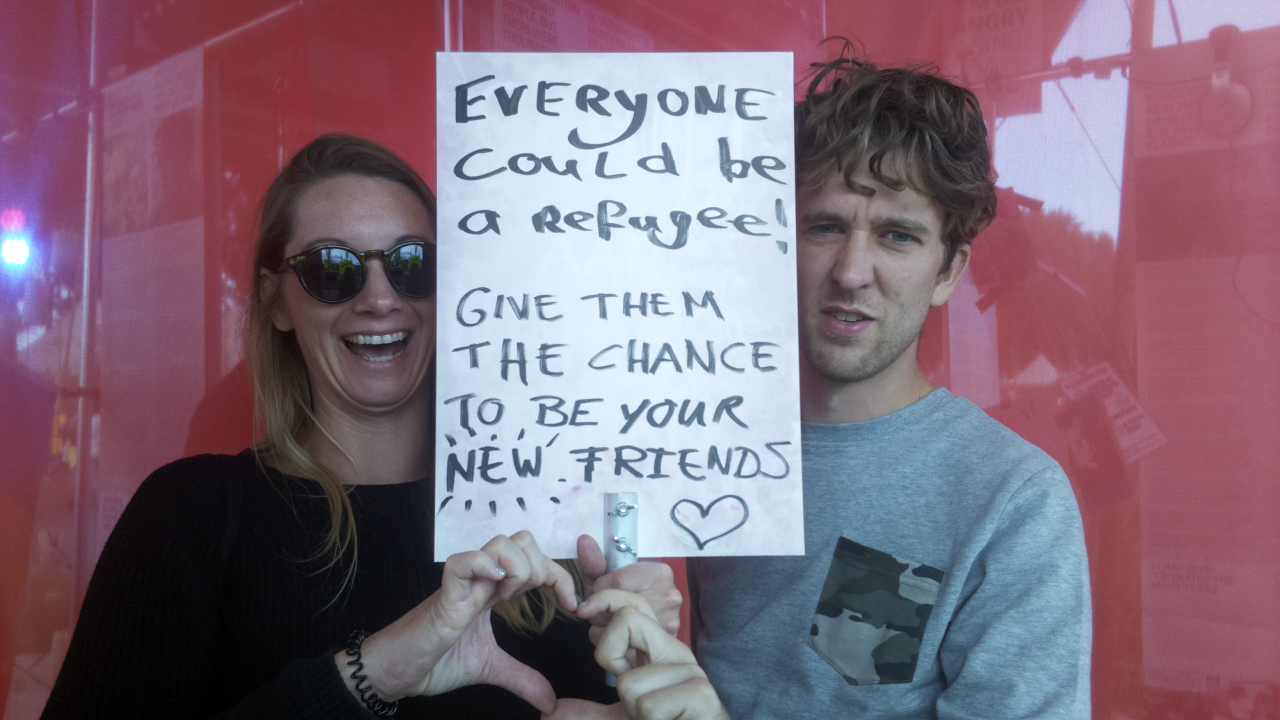 EVERYONE
COULD be
a Refugee!
GIVE THEM
THE CHANCE
TO BE YOUR
NEW FRIENDS
ANGRY